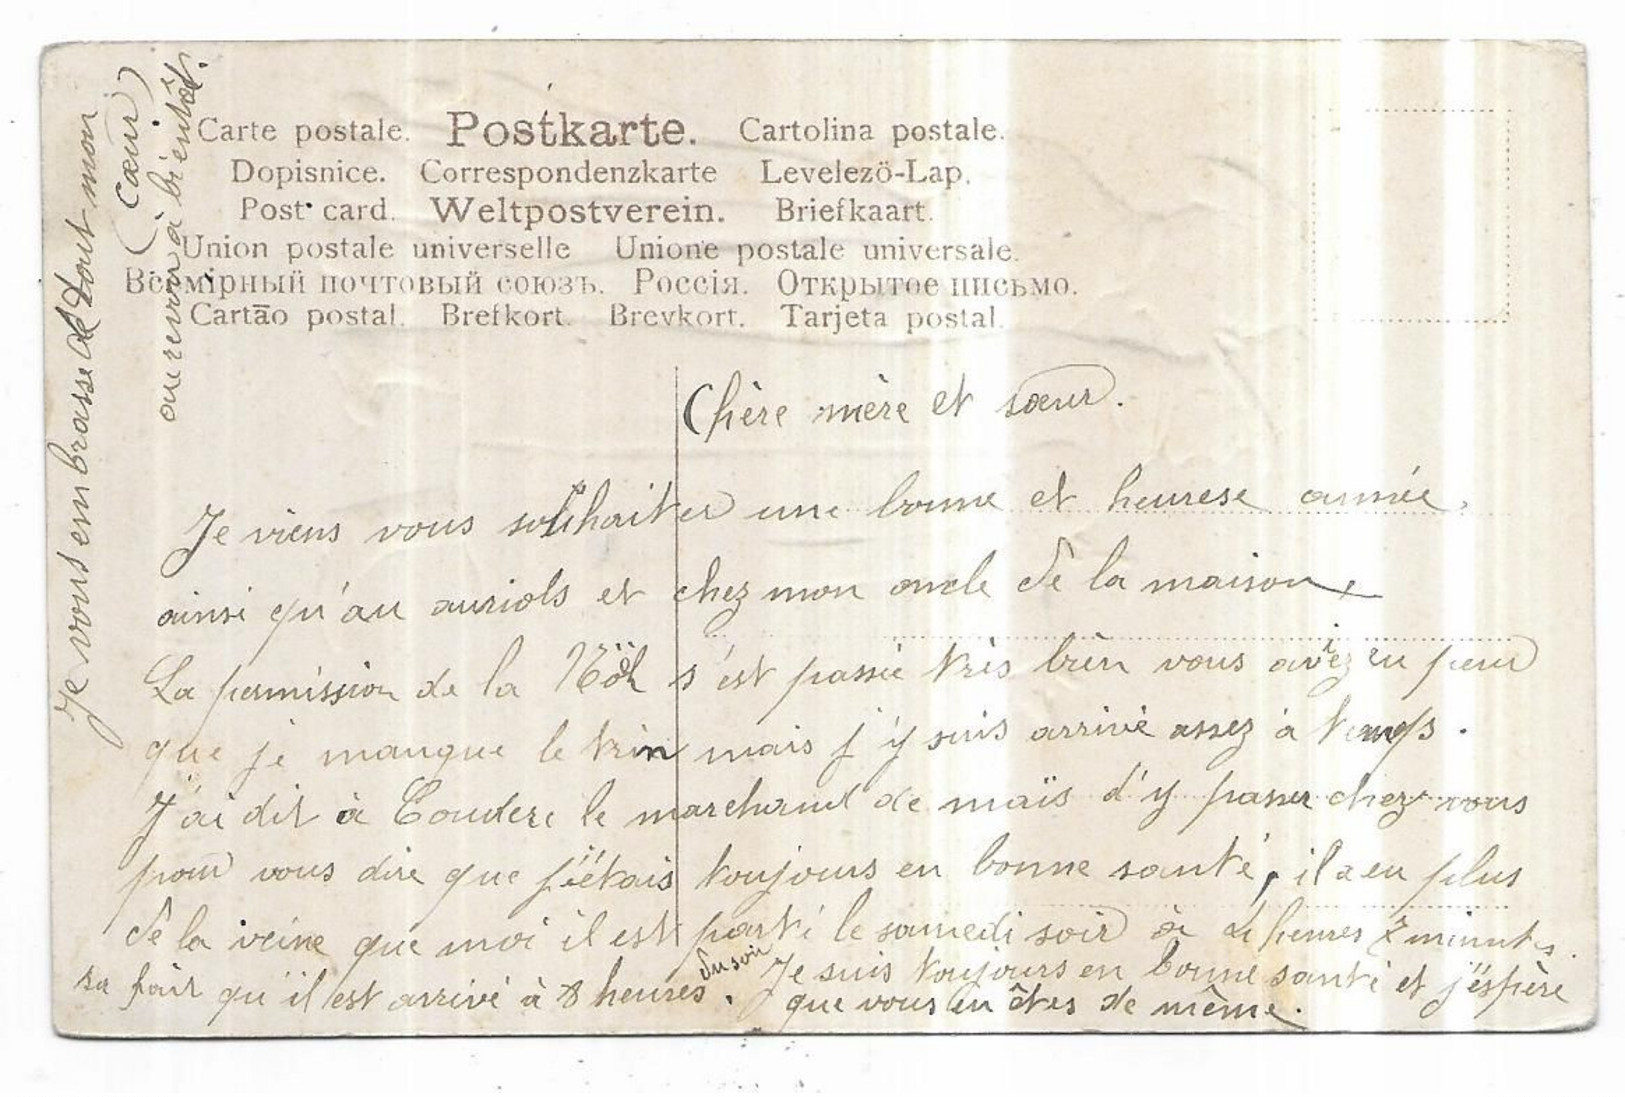 Carte postale. Postkarte. Cartolina postale.
Dopisnice. Correspondenzkarte Levelezö-Lap.
Post card. Weltpostverein. Briefkaart.
Union postale universelle Unione postale universale.
Всемірный почтовый союзъ. Россія. Открытое письмо.
Cartāo postal. Brefkort. Brevkort. Tarjeta postal.
Chère mère et sœur.
Je viens vous souhaiter une bonne et heurese année,
ainsi qu'au auriols et chez mon oncle de la maison
La permission de la Nöel s'est passée très bien vous avez eu peur
que je manque le trin mais j'y suis arrivé assez à temps.
J'ai dit à Couderc le marchand de maïs d'y passer chez vous
pour vous dire que j'étais toujours en bonne santé, il a eu plus
de la veine que moi il est parti le samedi soir à 4 heures 7 minutes
sa fait qu'il est arrivé à 8 heures du soir. Je suis toujours en bonne santé et j'éspère
que vous en êtes de même.
Je vous embrasse de tout mon
(cœur)
au revoir à bientôt.